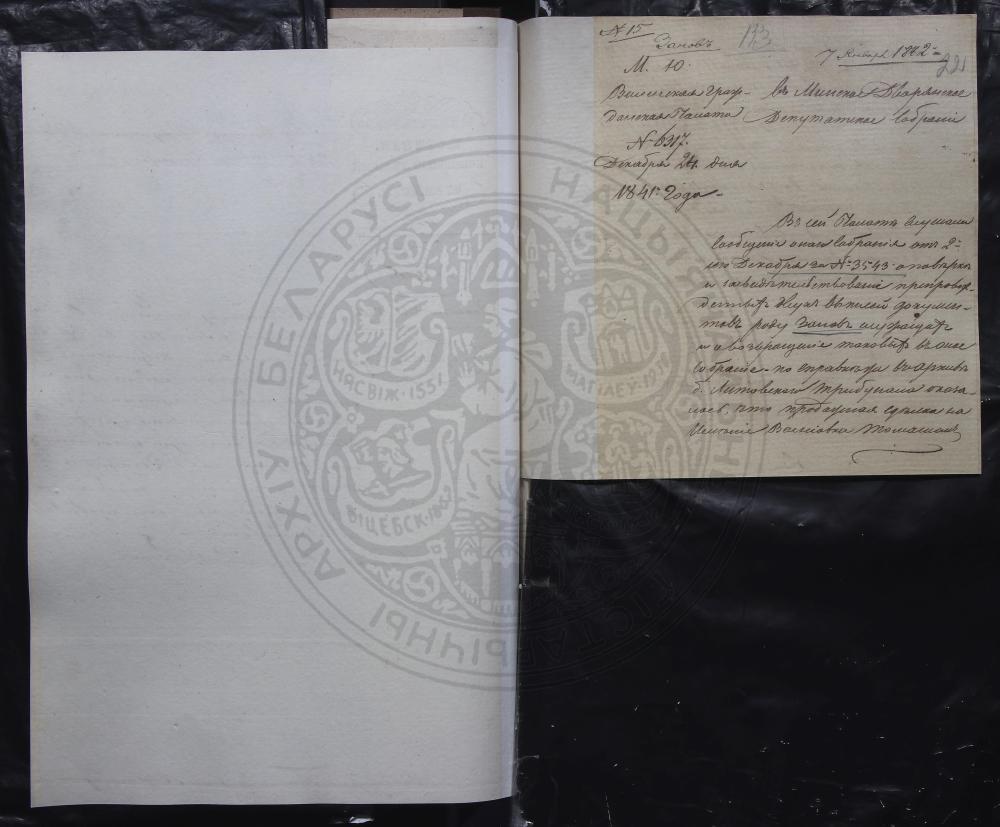 № 15
Зановъ
193
7 Января 1842
221
М. Ю.
Виленская Граж-
данская Палата
№ 6317.
Декабря 24 дня
1841 Года
въ Минское Дворянское
Депутатское Собраніе
Въ сей Палатѣ слушали
сообщеніе онаго Собранія отъ 2-
го Декабря за № 3543 о повѣркѣ
и засвидѣтельствованіи препровож-
двухъ выписей докумен-
товъ роду Зановъ
и о возвращеніи таковыхъ въ оное
Собраніе по справкѣ въ архивѣ
б. Литовскаго Трибунала оказа-
лось, что продажная сдѣлка на
Имѣніе Томашомъ
НАЦЫЯ
ГІСТАРЫЧНЫ АРХІЎ БЕЛАРУСІ
НЯСВІЖ·155
МАГІЛЕЎ·19
ВІЦЕБСК·18